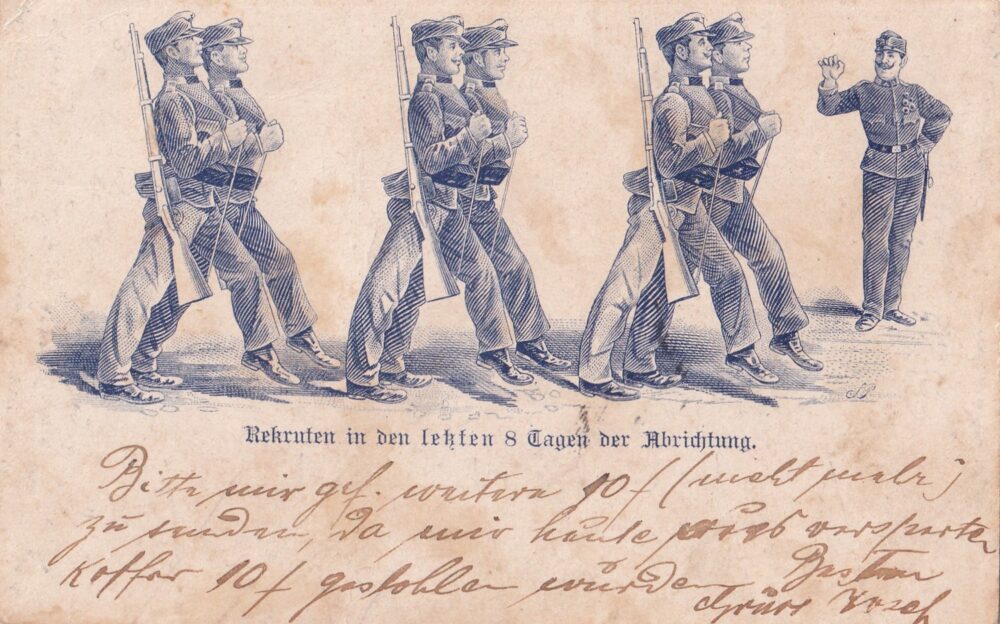 Rekruten in den letzten 8 Tagen der Abrichtung.
Bitte mir gef. weitere 10 f (nicht mehr)
zu senden, da mir heute versperrten
Koffer 10 f gestohlen wurden Besten
Gruss Josef